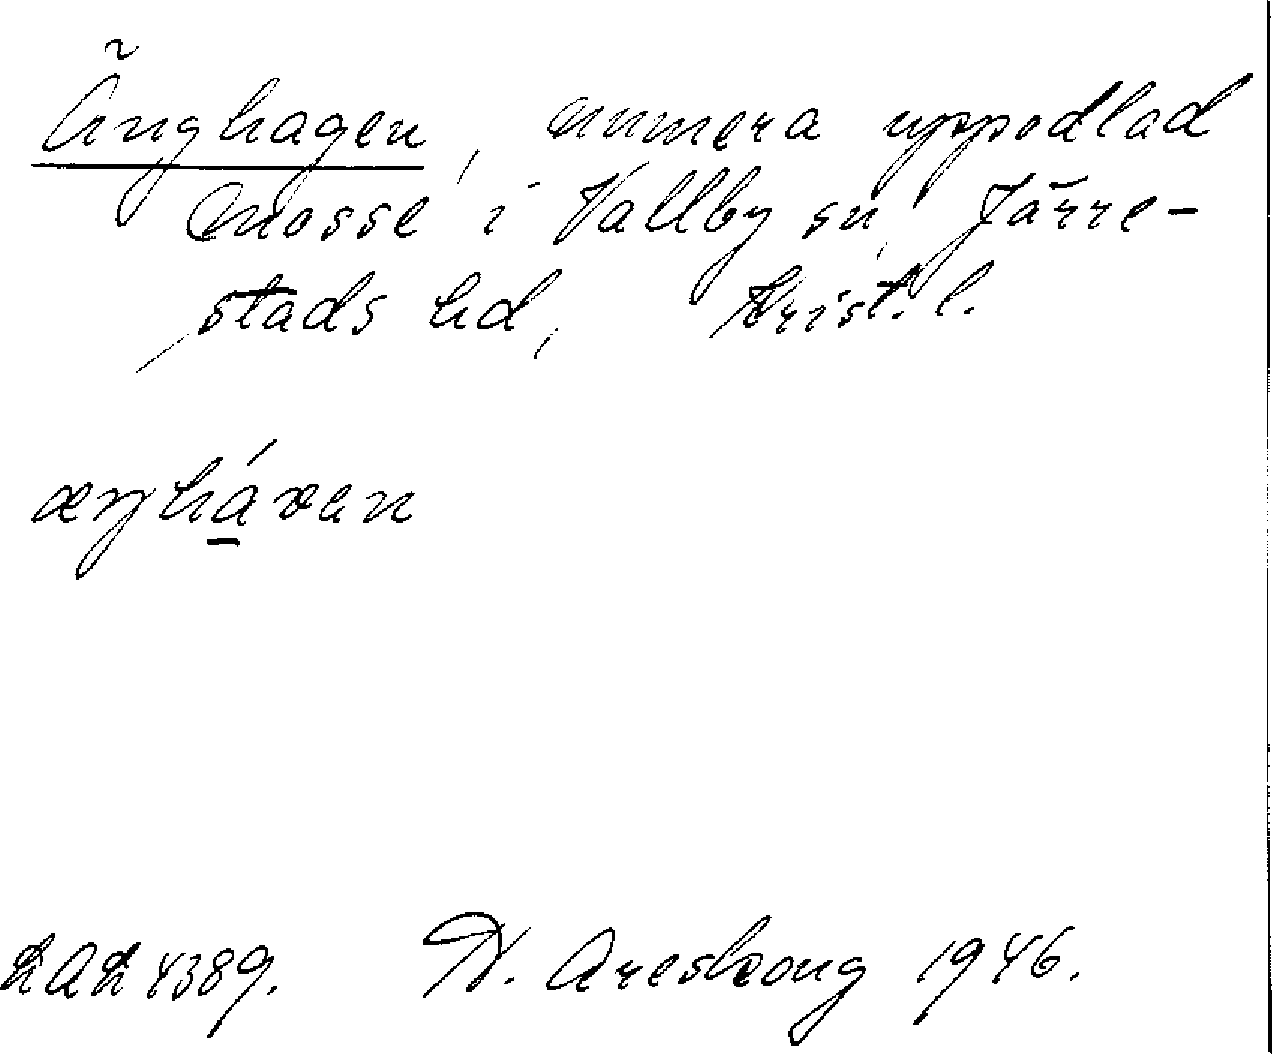 Änghagen, numera uppodlad
mosse i Vallby sn, Järre-
stads hd, Krist. l.
æŋháven
LAL 4389. D. Areskoug 1946.